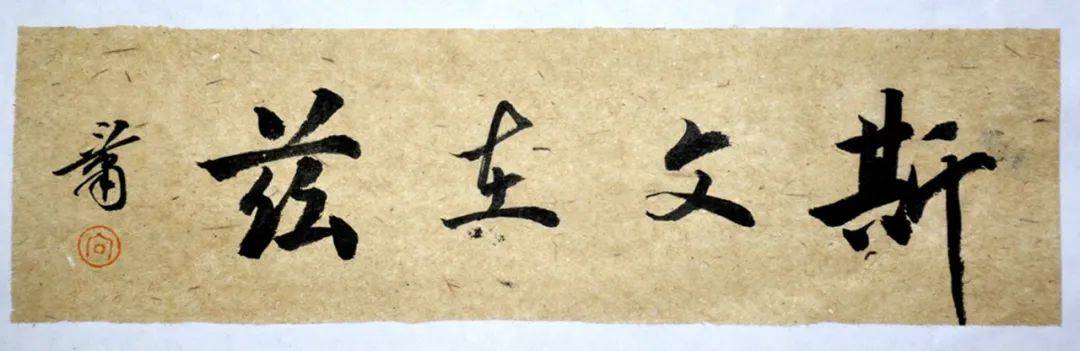 斯文在兹
蕭
向